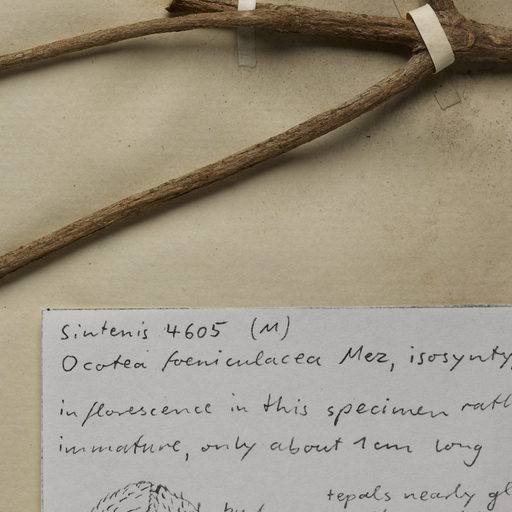 Sintenis 4605 (M)
Ocotea foeniculacea Mez, isosynty
inflorescence in this specimen rath
immature, only about 1 cm long
tepals nearly gl